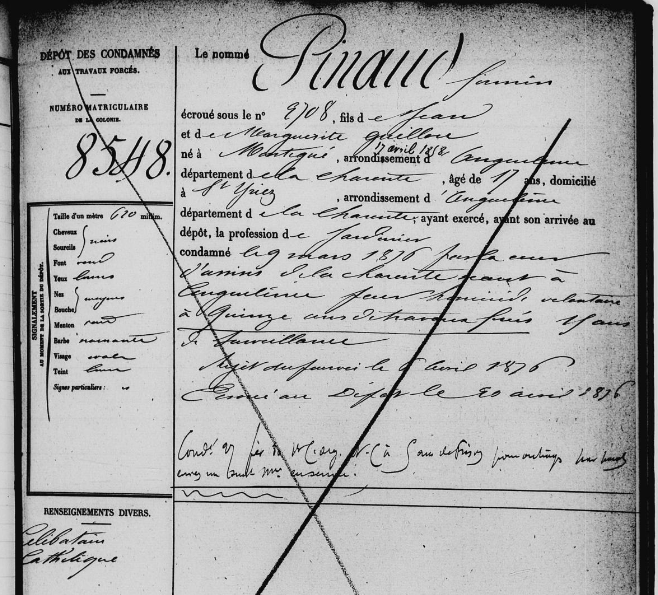 DÉPÔT DES CONDAMNÉS
AUX TRAVAUX FORCÉS.
NUMÉRO MATRICULAIRE
DE LA COLONIE.
8548.
Taille d'un mètre 620 millim.
Cheveux
Sourcils } noirs
Front rond
Yeux bruns
Nez
Bouche } moyens
Menton rond
Barbe naissante
Visage ovale
Teint brun
Signes particuliers :
SIGNALEMENT
AU MOMENT DE LA SORTIE DU DÉPÔT.
RENSEIGNEMENTS DIVERS.
Célibataire
Catholique
Le nommé Pinaud Firmin
écroué sous le n° 9708, fils de Jean
et de Marguerite Guillon
17 avril 1858
né à , arrondissement d'Angoulême
département de la Charente, âgé de 17 ans, domicilié
à St Yriex, arrondissement d'Angoulême
département de la Charente; ayant exercé, avant son arrivée au
dépôt, la profession de Jardinier
condamné le 9 mars 1876 par la cour
d'assises de la Charente séant à
Angoulême pour homicide volontaire
à Quinze ans de travaux forcés 15 ans
de Surveillance
Rejet du pourvoi le 6 avril 1876
au Dépôt le 20 avril 1876
Condé 27 à 5 ans de Prison pour outrages par